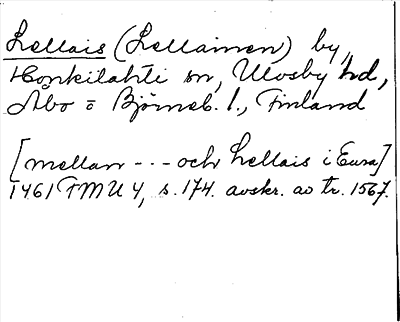 Lellais (Lellainen) by,
Honkilahti sn, Ulvsby hd,
Åbo o Björneb. l., Finland
[mellan --- och Lellais i Eura]
1461 FMU 4, s. 174. avskr. av tr. 1567.